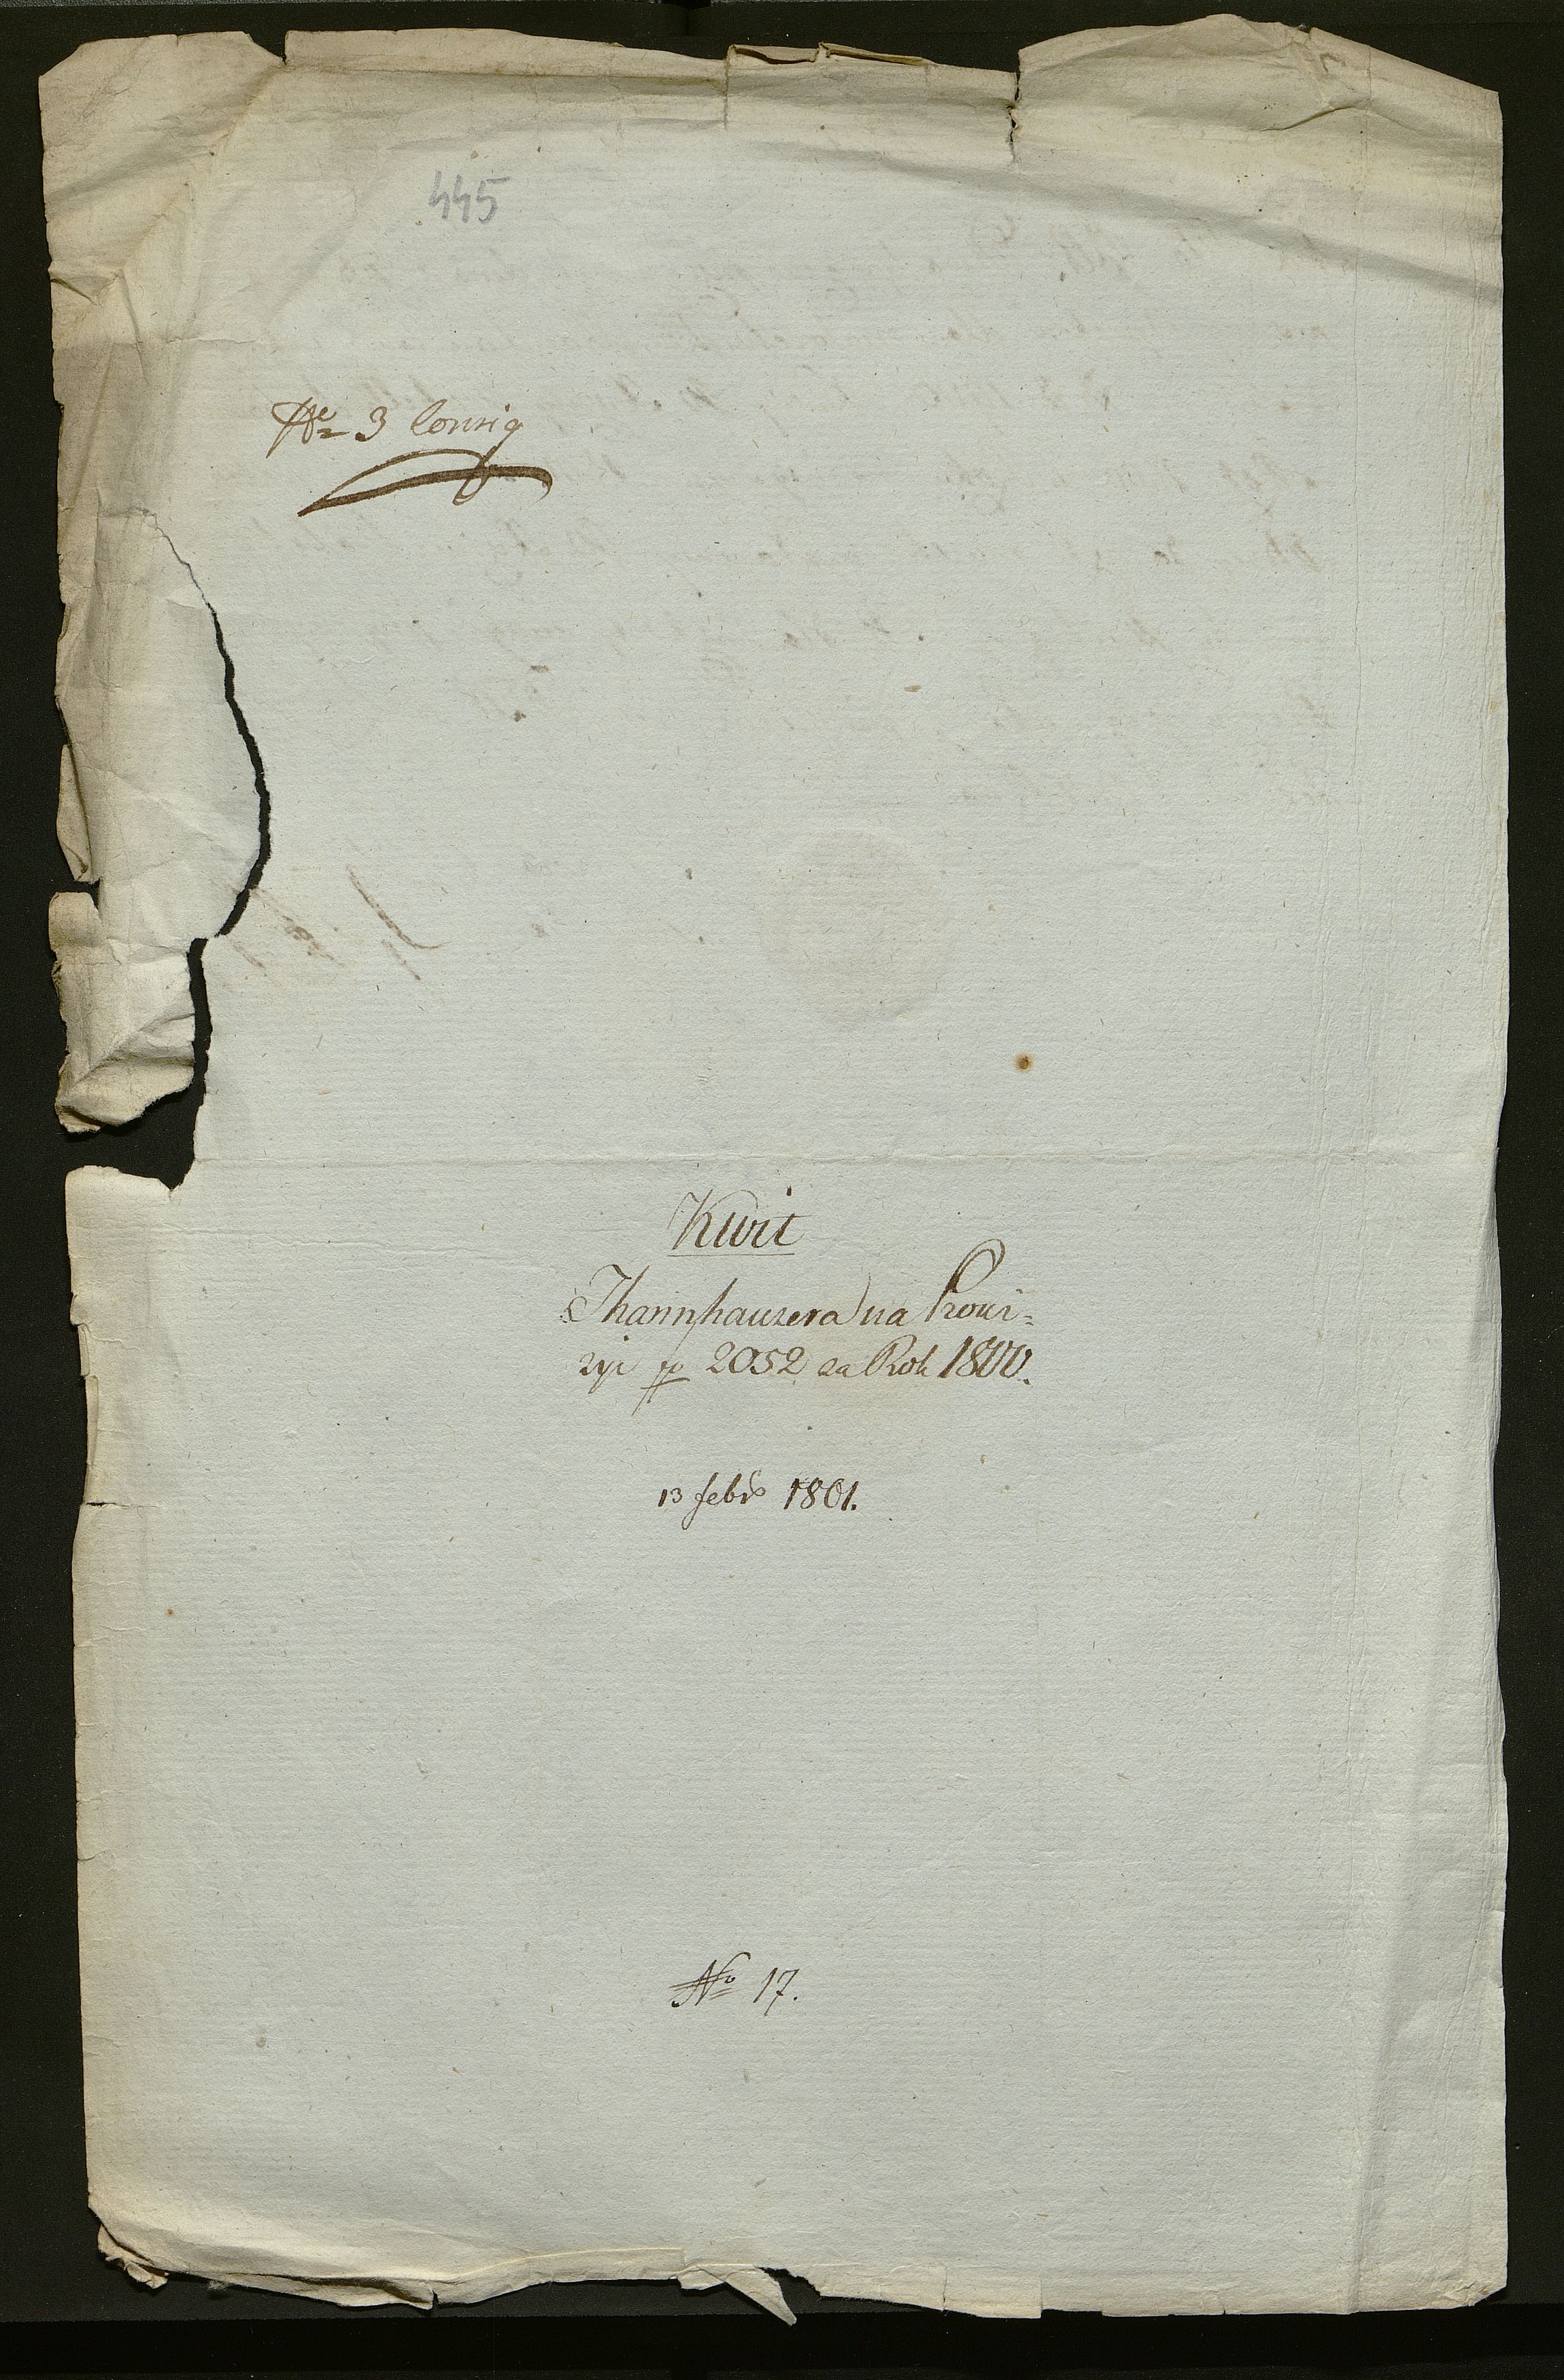 445
No 3 Consig
Kwit
Thannhauzera na Prowi=
zyi p 2052 za Rok 1800.
13 febr 1801.
No 17.